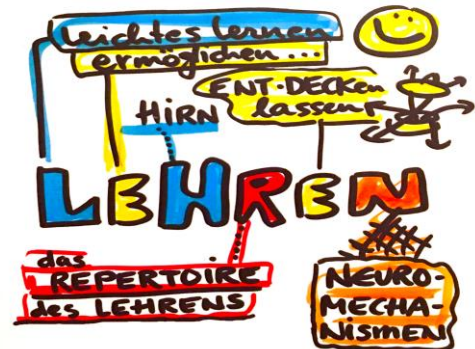 leichtes lernen
ermöglichen...
ENT·DECKen
lassen
HiRN
LEHREN
das
REPERTOIRE
des LEHRENS
NEURO-
MECHA-
NiSMEN